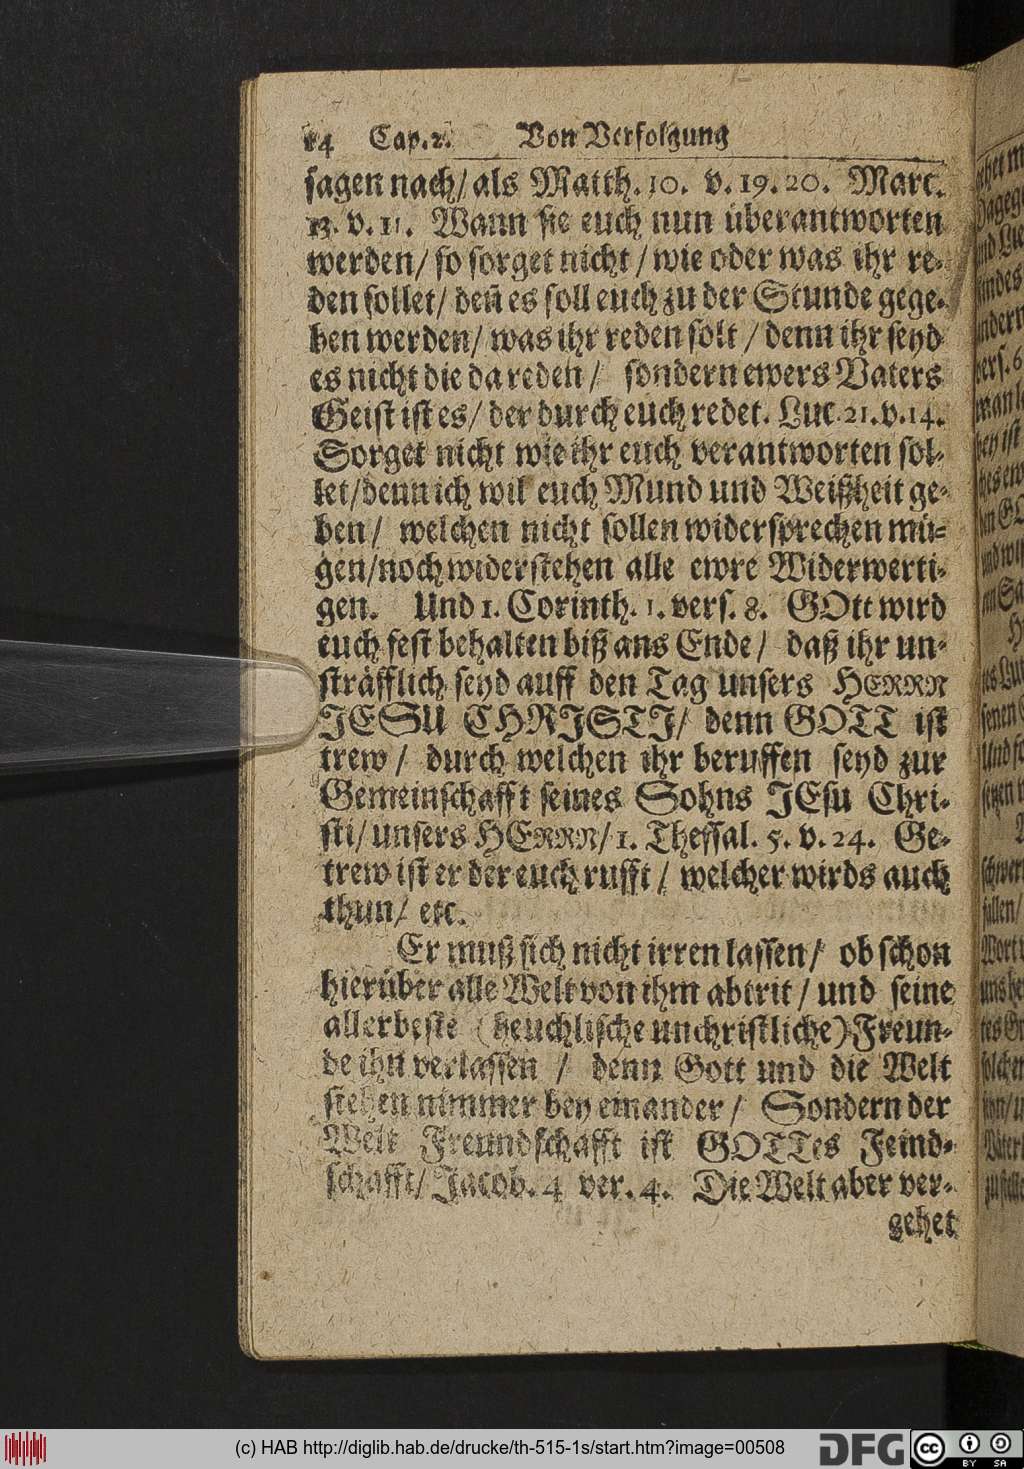 14 Cap. 2. Von Verfolgung
sagen nach/ als Matth. 10. v. 19. 20. Marc.
13. v. 11. Wann sie euch nun überantworten
werden/ so sorget nicht/ wie oder was ihr re-
den sollet/ deñ es soll euch zu der Stunde gege-
ben werden/ was ihr reden solt / denn ihr seyd
es nicht die da reden / sondern ewers Vaters
Geist ist es/ der durch euch redet. Luc. 21. v. 14.
Sorget nicht wie ihr euch verantworten sol-
let/ denn ich wil euch Mund und Weißheit ge-
ben / welchen nicht sollen widersprechen mü-
gen/ noch widerstehen alle ewre Widerwerti-
gen. Und 1. Corinth. 1. vers. 8. GOtt wird
euch fest behalten biß ans Ende / daß ihr un-
sträfflich seyd auff den Tag unsers HERRN
JESU CHRISTI/ denn GOTT ist
trew / durch welchen ihr beruffen seyd zur
Gemeinschafft seines Sohns JEsu Chri-
sti/ unsers HERRN/ 1. Thessal. 5. v. 24. Ge-
trew ist er der euch rufft / welcher wirds auch
thun/ etc.
Er muß sich nicht irren lassen/ ob schon
hierüber alle Welt von ihm abtrit / und seine
allerbeste (heuchlische unchristliche) Freun-
de ihn verlassen / denn Gott und die Welt
stehen nimmer bey einander / Sondern der
Welt Freundschafft ist GOTTes Feind-
schafft/ Jacob. 4 ver. 4. Die Welt aber ver-
gehet
(c) HAB http://diglib.hab.de/drucke/th-515-1s/start.htm?image=00508
DFG
cc BY SA